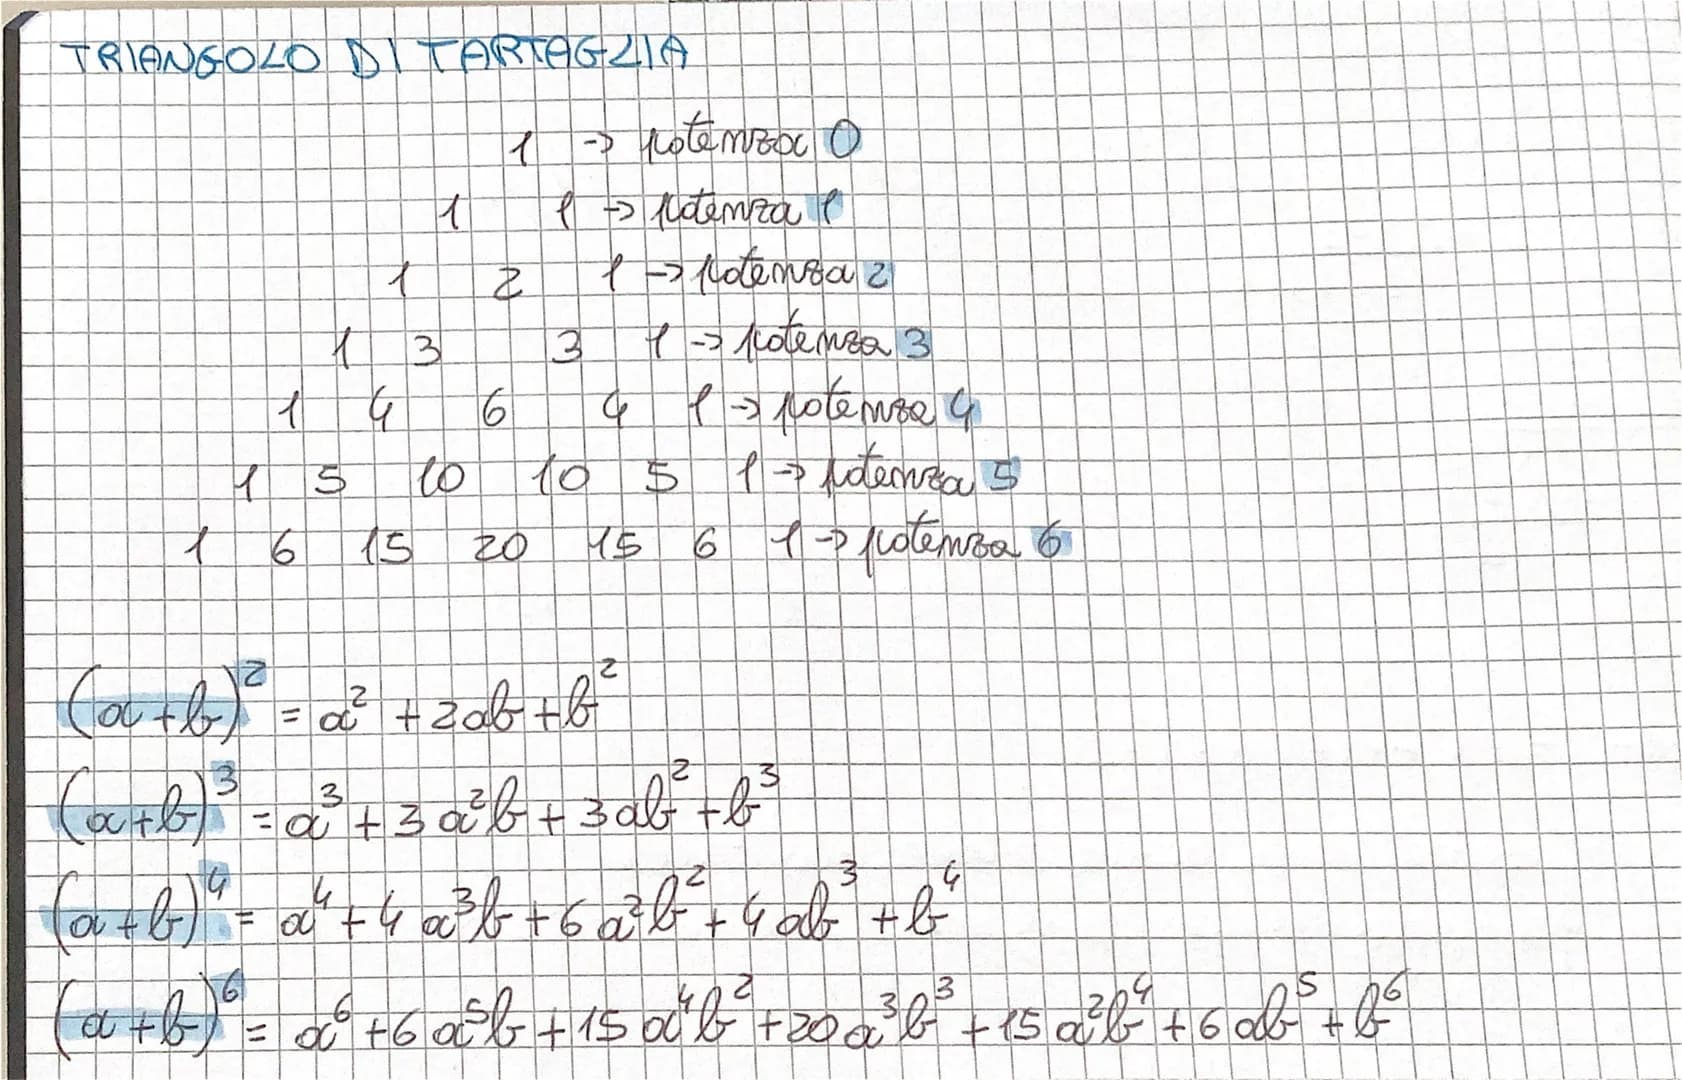 TRIANGOLO DI TARTAGLIA
1 -> potenza 0
1 1 -> potenza 1
1 2 1 -> potenza 2
1 3 3 1 -> potenza 3
1 4 6 4 1 -> potenza 4
1 5 10 10 5 1 -> potenza 5
1 6 15 20 15 6 1 -> potenza 6
(a+b)² = a² + 2ab + b²
(a+b)³ = a³ + 3a²b + 3ab² + b³
(a+b)⁴ = a⁴ + 4a³b + 6a²b² + 4ab³ + b⁴
(a+b)⁶ = a⁶ + 6a⁵b + 15a⁴b² + 20a³b³ + 15a²b⁴ + 6ab⁵ + b⁶